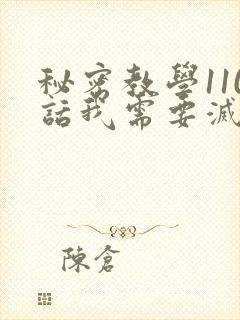 秘密教學110
話我需要滅
陳倉